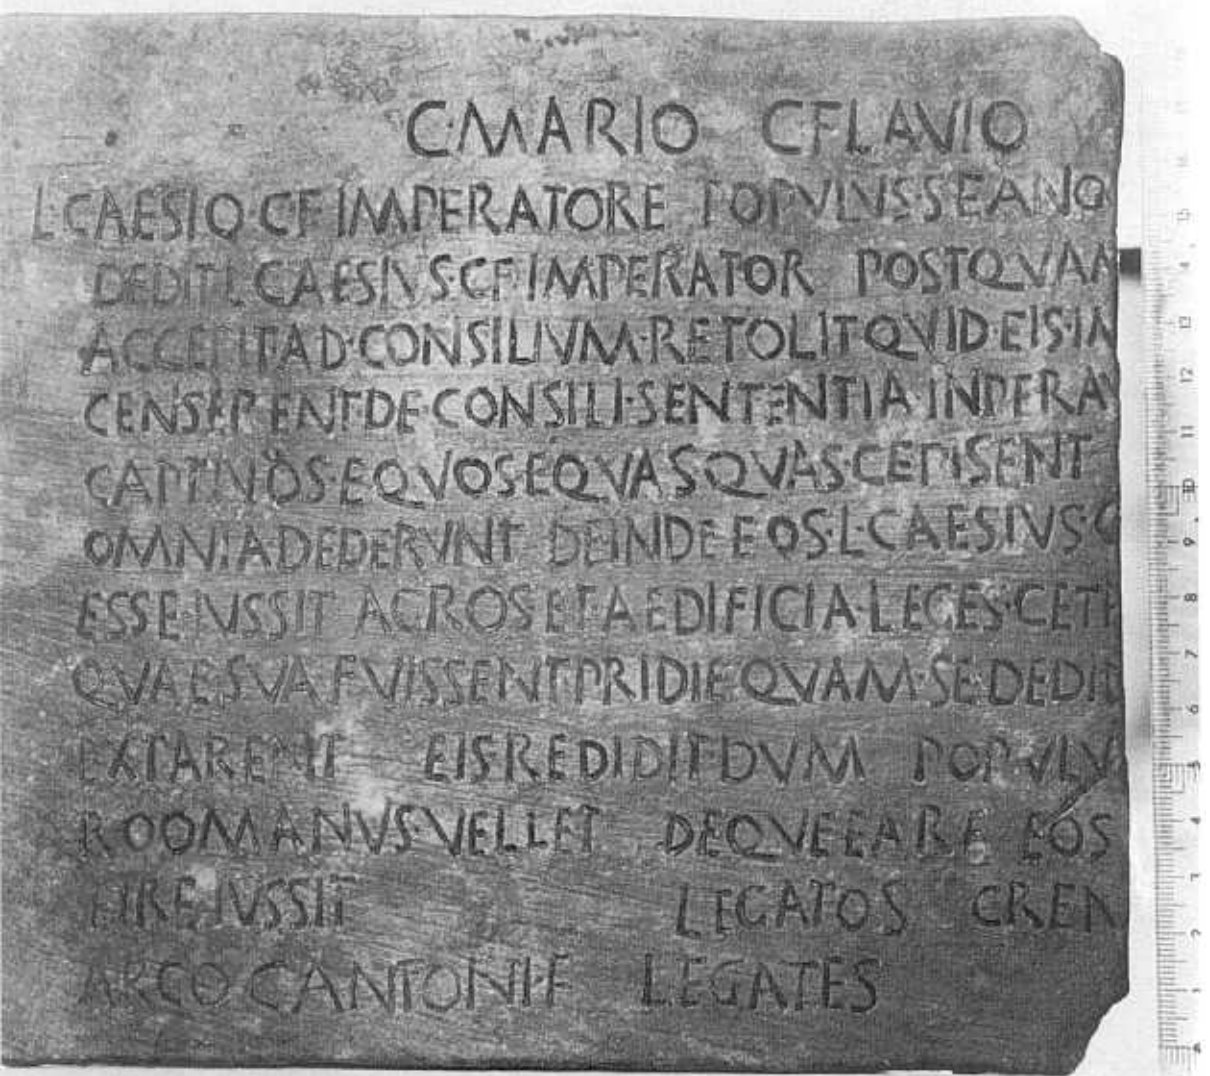 C·MARIO C FLAVIO
L·CAESIO C F IMPERATORE POPVLVS SEANO
DEDIT L CAESIVS·C F IMPERATOR POSTQVAM
ACCEPIT AD·CONSILIVM·RETOLIT QVID·EIS·IN
CENSERENT DE·CONSILI·SENTENTIA·INPERAV
CAPTIVOS·EQVOS EQVAS QVAS·CEPISENT
OMNIA DEDERVNT DEINDE EOS·L·CAESIVS·C
ESSE·IVSSIT AGROS ET AEDIFICIA·LEGES·CETE
QVAE SVA FVISSENT PRIDIE QVAM·SE·DEDID
EXTARENT EIS REDIDIT DVM POPVLVS
ROOMANVS·VELLET DEQVE EA RE EOS
EIRE·IVSSIT LEGATOS CREN
ARCO CANTONI·F LEGATES